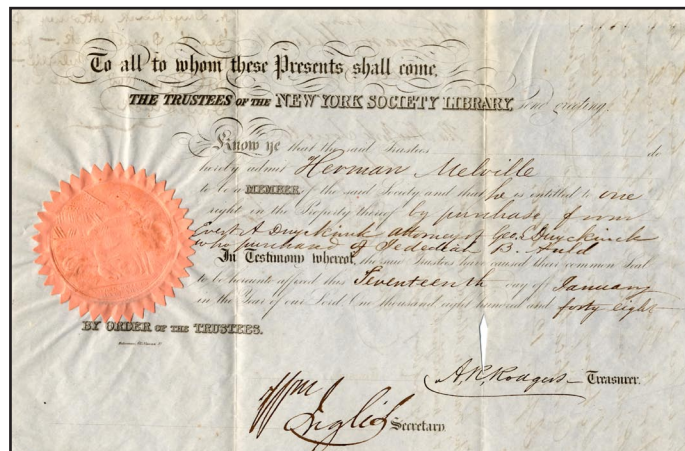 To all to whom these Presents shall come,
THE TRUSTEES OF THE NEW YORK SOCIETY LIBRARY, send greeting:
Know ye that the said Trustees do
hereby admit Herman Melville
to be a MEMBER of the said Society and that he is entitled to one
right in the Property thereof by purchase from
Evert A Duyckinck attorney of Geo. L Duyckinck
who purchased of Jedediah B. Auld
In Testimony whereof, the said Trustees have caused their common Seal
to be hereunto affixed this Seventeenth day of January
in the Year of our Lord, One thousand eight hundred and forty eight
BY ORDER OF THE TRUSTEES.
A. R. Rodgers Treasurer.
Wm Inglis Secretary